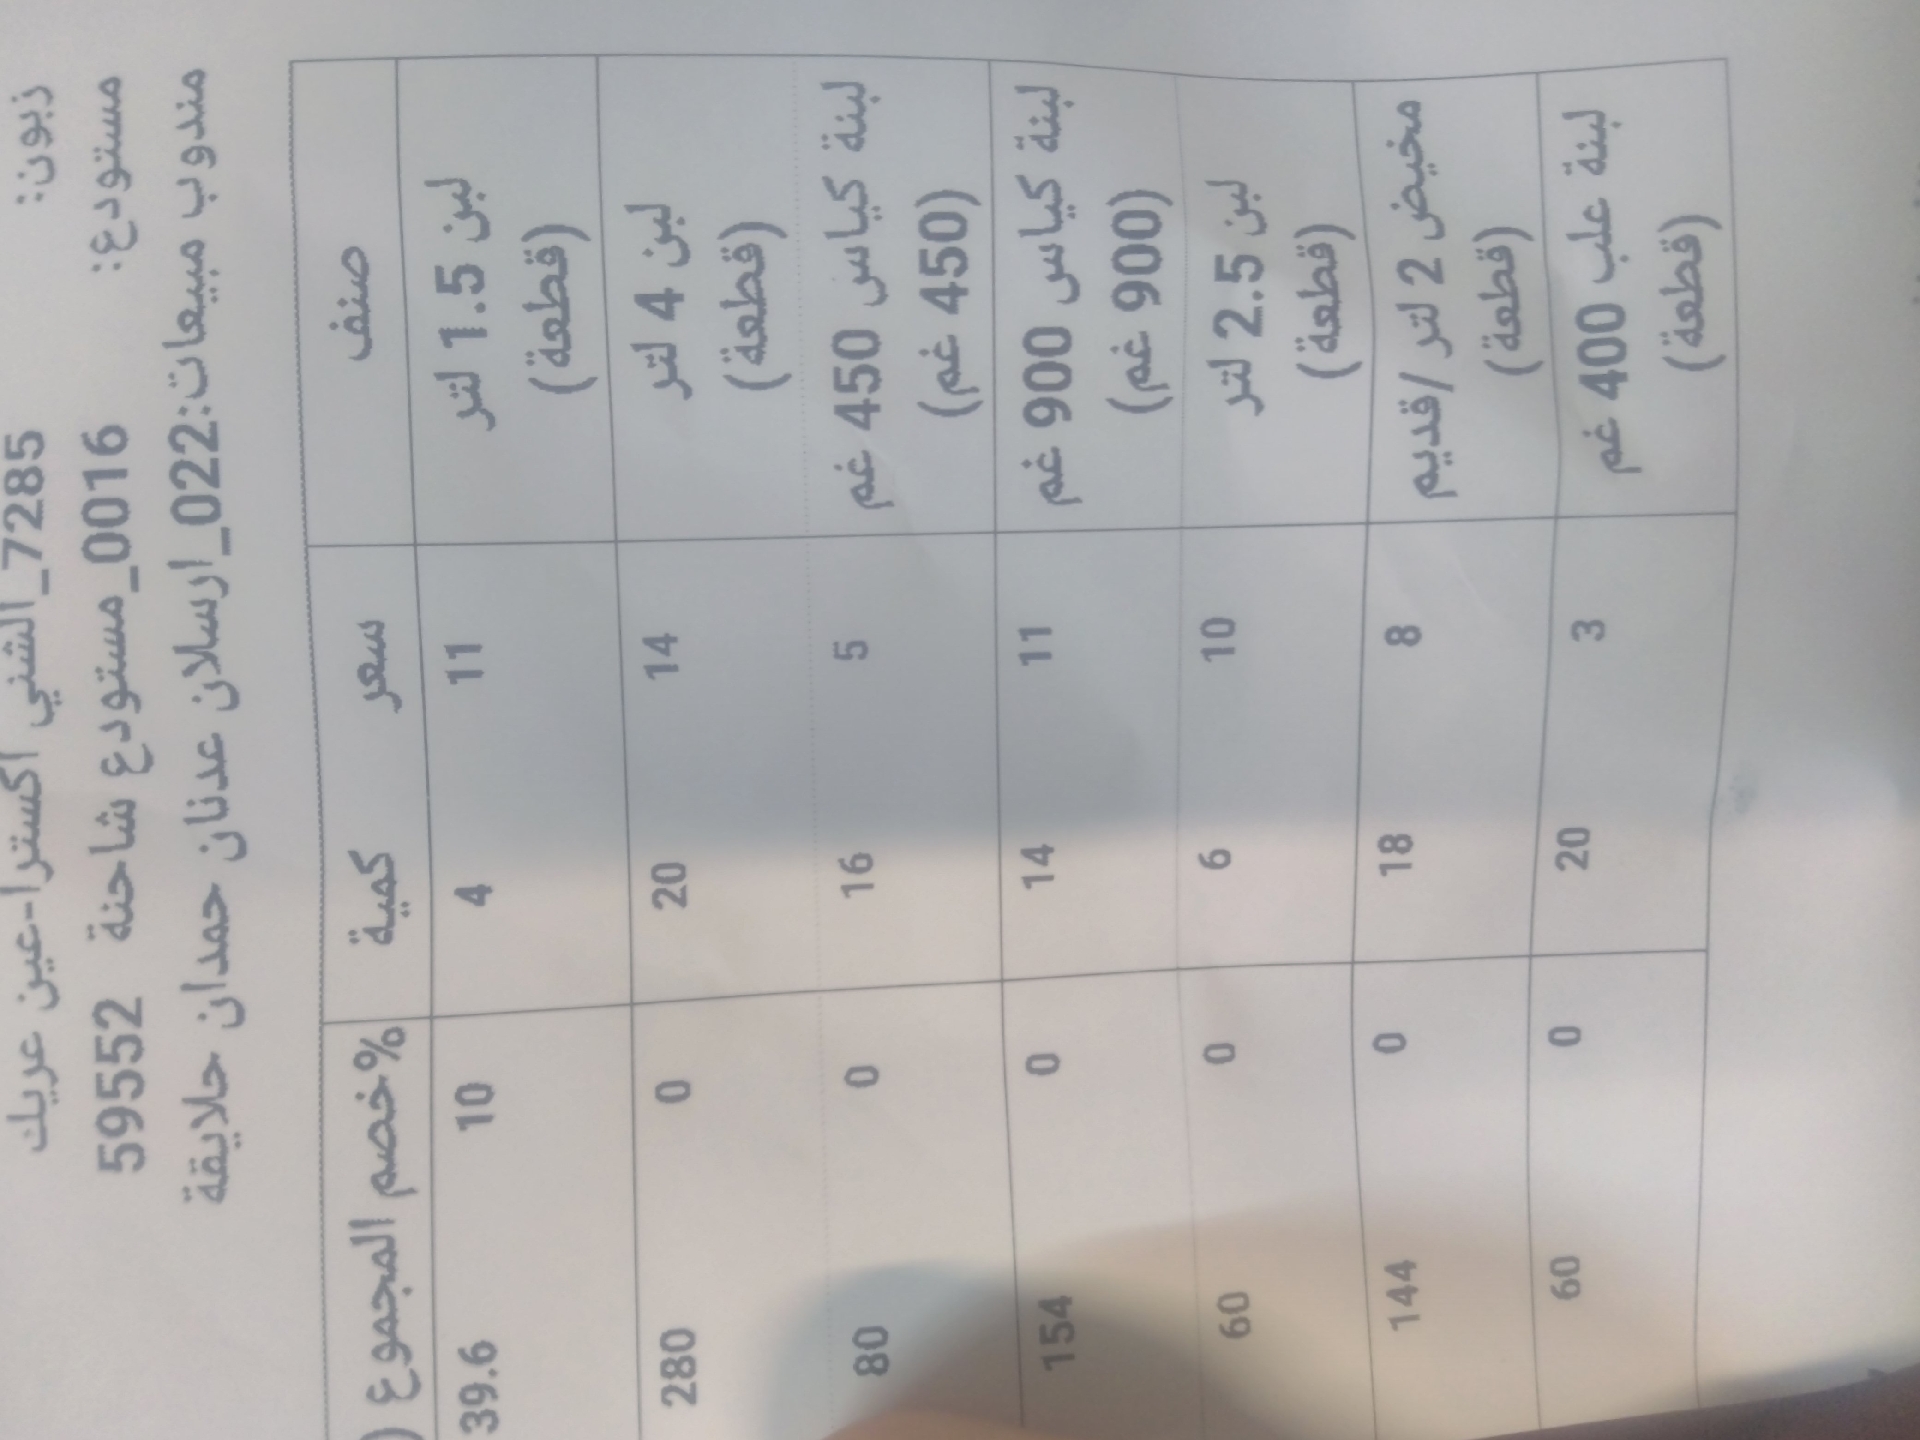 زبون: 7285_الشني اكسترا-عين عريك
مستودع: 0016_مستودع شاحنة 59552
مندوب مبيعات:022_ارسلان عدنان حمدان حلايقة
صنف سعر كمية %خصم المجموع (
لبن 1.5 لتر (قطعة) 11 4 10 39.6
لبن 4 لتر (قطعة) 14 20 0 280
لبنة كياس 450 غم (450 غم) 5 16 0 80
لبنة كياس 900 غم (900 غم) 11 14 0 154
لبن 2.5 لتر (قطعة) 10 6 0 60
مخيض 2 لتر /قديم (قطعة) 8 18 0 144
لبنة علب 400 غم (قطعة) 3 20 0 60